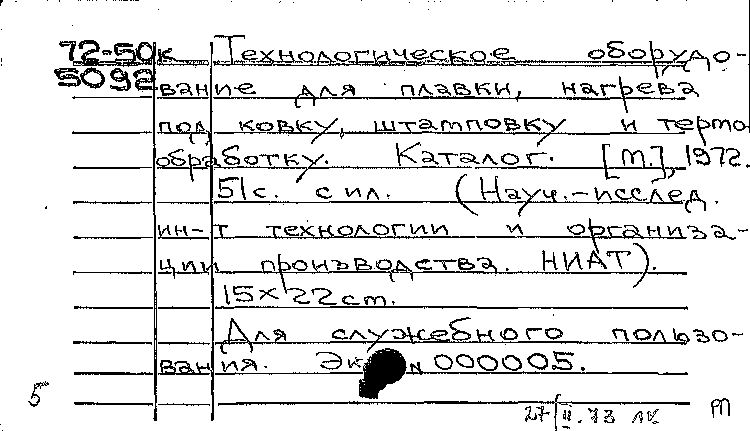 72-50к Технологическое оборудо-
5092 вание для плавки, нагрева
под ковку, штамповку и термо
обработку. Каталог. [М.], 1972.
51с. с ил. (Науч.-исслед.
ин-т технологии и организа-
ции производства. НИАТ).
15×22см.
Для служебного пользо-
вания. Эк N 000005.
5
27/II.73 ЛК РП